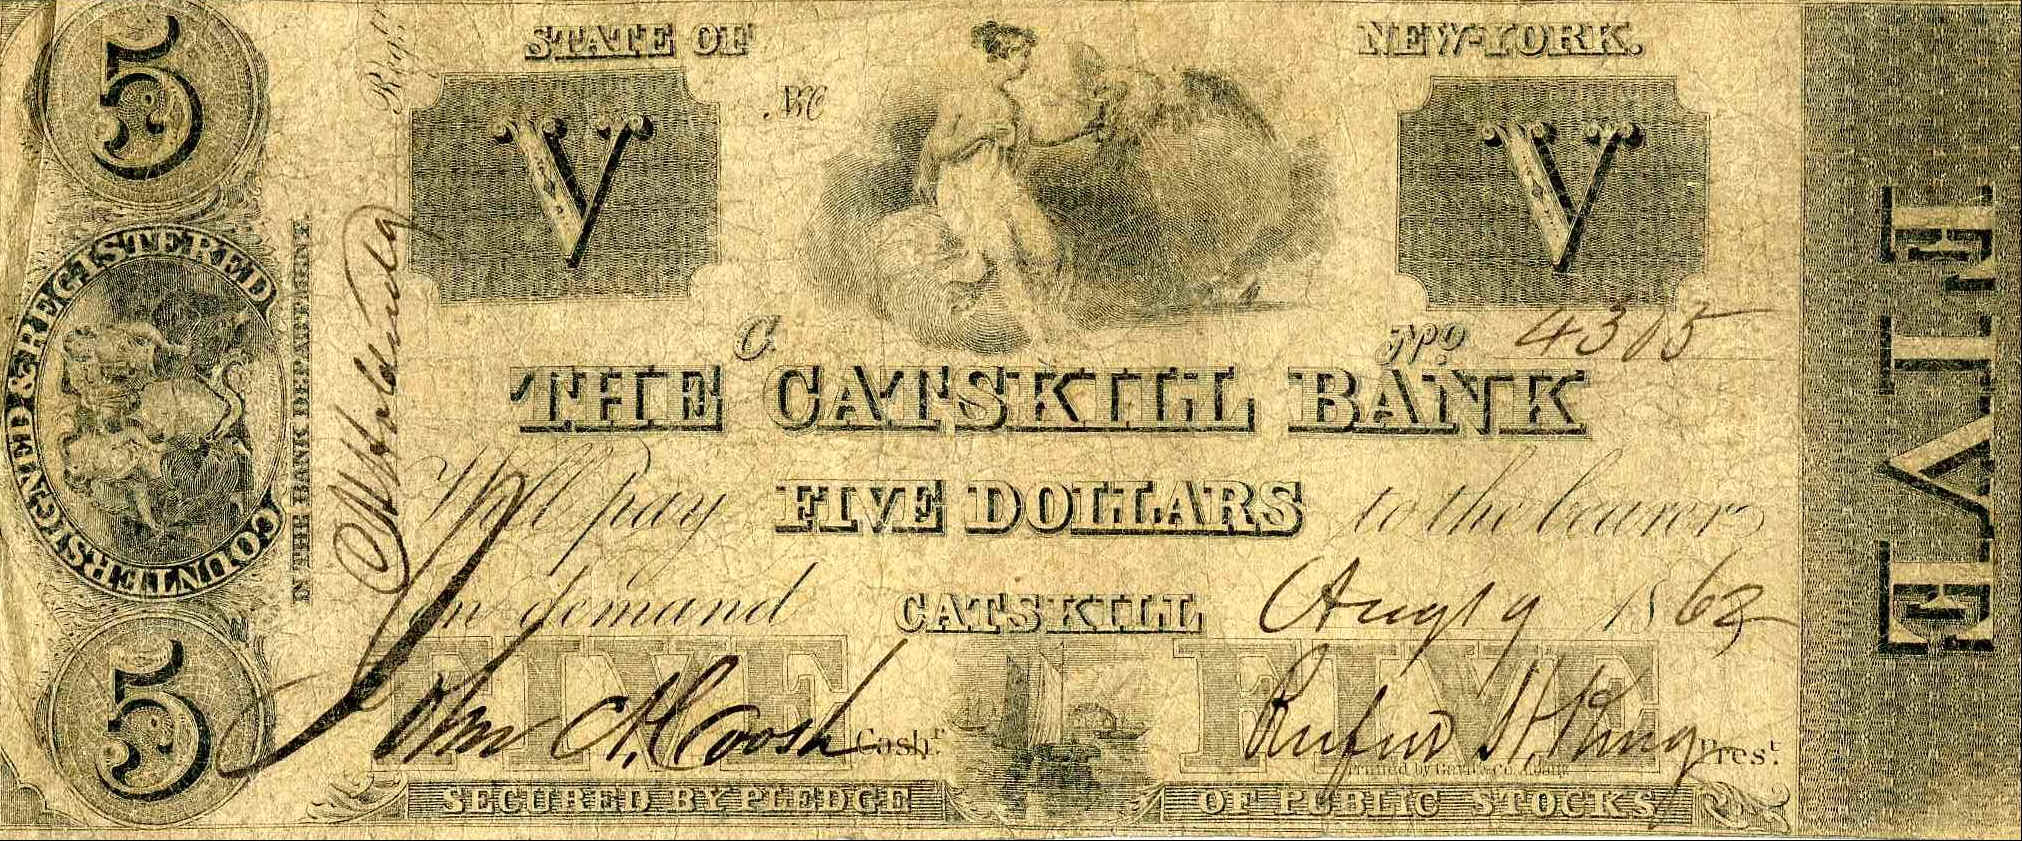 5
STATE OF NEW-YORK.
V
V
FIVE
COUNTERSIGNED & REGISTERED
IN THE BANK DEPARTMENT.
C.
No. 4305
THE CATSKILL BANK
Will pay FIVE DOLLARS to the bearer
on demand CATSKILL Augt 9 1862
FIVE
FIVE
5
John A. Cooke Cashr.
Rufus H. King Prest.
SECURED BY PLEDGE OF PUBLIC STOCKS